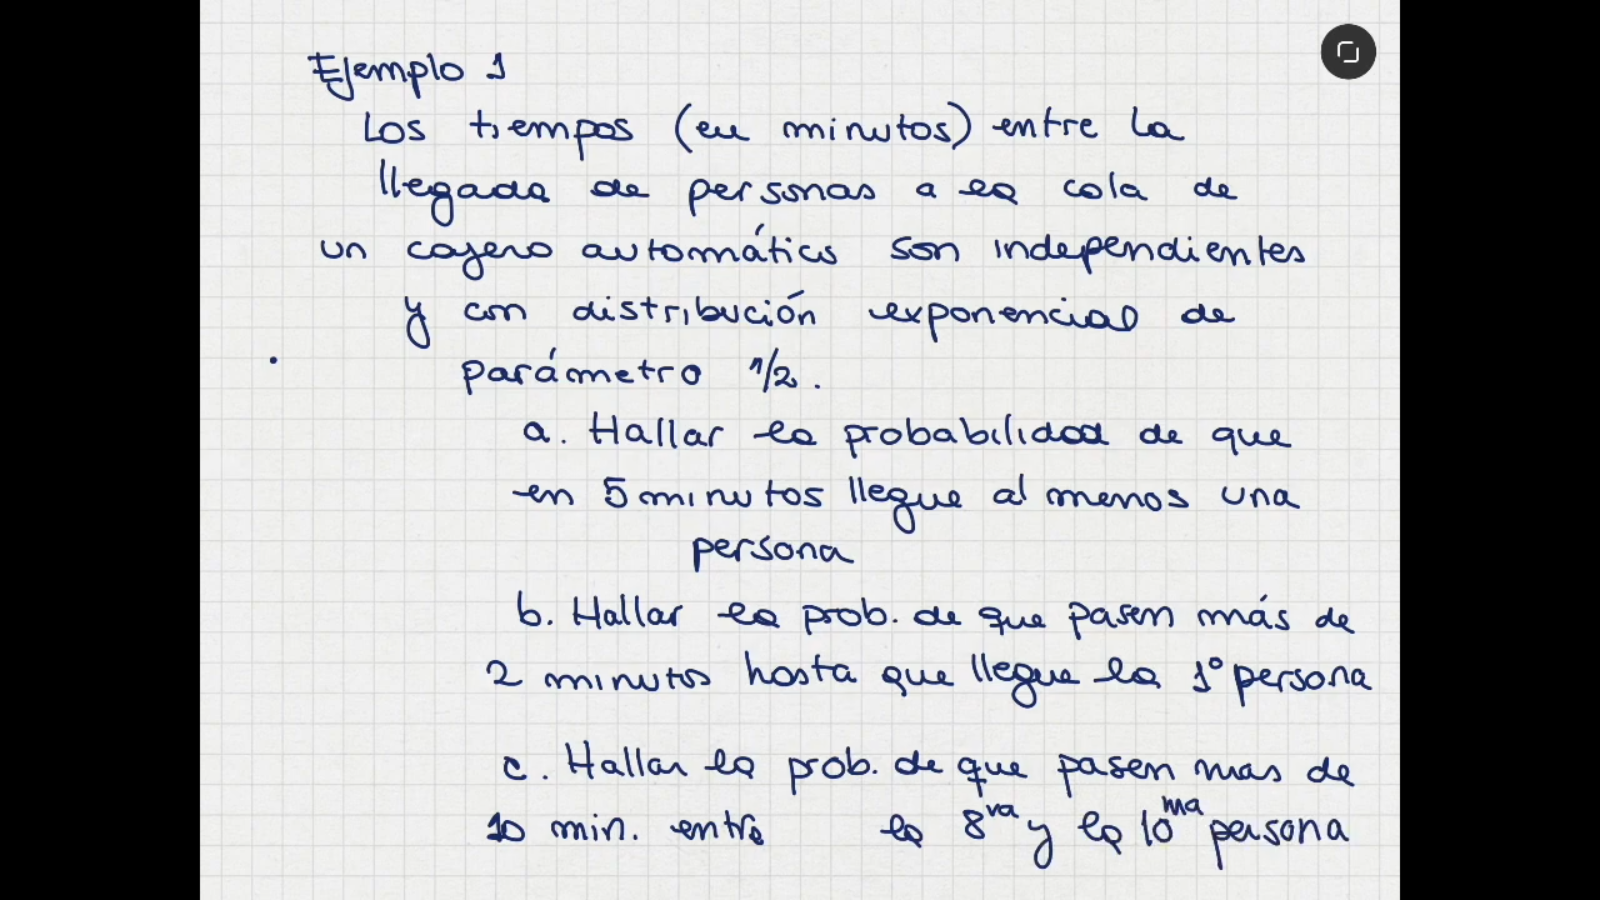 Ejemplo 1
Los tiempos (en minutos) entre la
llegada de personas a la cola de
un cajero automático son independientes
y con distribución exponencial de
parámetro 1/2.
a. Hallar la probabilidad de que
en 5 minutos llegue al menos una
persona
b. Hallar la prob. de que pasen más de
2 minutos hasta que llegue la 1º persona
c. Hallar la prob. de que pasen mas de
10 min. entre la 8va y la 10ma persona